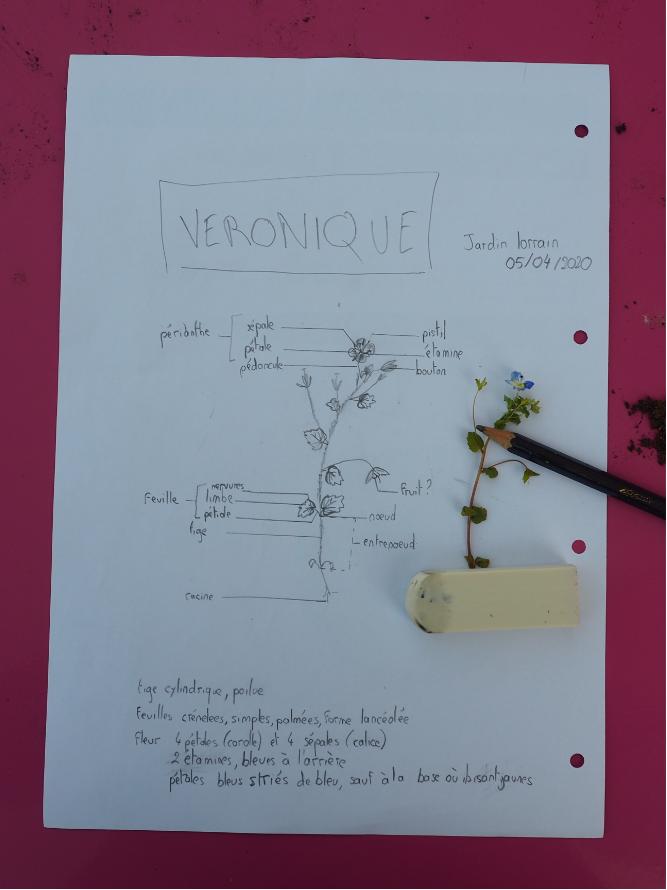 VERONIQUE
Jardin lorrain
05/04/2020
périanthe
sépale
pétale
pédoncule
pistil
étamine
bouton
Feuille
nervures
limbe
pétiole
tige
fruit?
noeud
entrenoeud
racine
tige cylindrique, poilue
Feuilles crénelees, simples, palmées, forme lancéolée
Fleur 4 pétales (corolle) et 4 sépales (calice)
2 étamines, bleues à l'arrière
pétales bleus striés de bleu, sauf à la base où ils sont jaunes